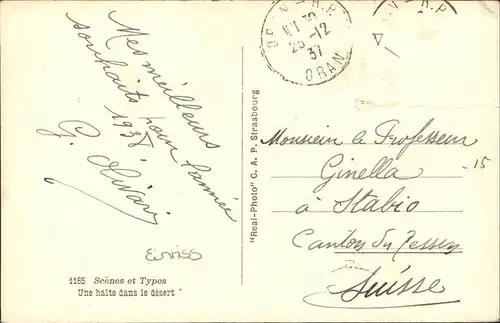 Mes meilleurs
souhaits pour l'année
1938
G.
Einriss
1165 Scènes et Types
Une halte dans le désert
"Real-Photo" C. A. P. Strasbourg
ORAN R.P
29 -12
37
ORAN
R.P
Monsieur le Professeur
Ginella
à Stabio
Canton du Tessin
Suisse
15